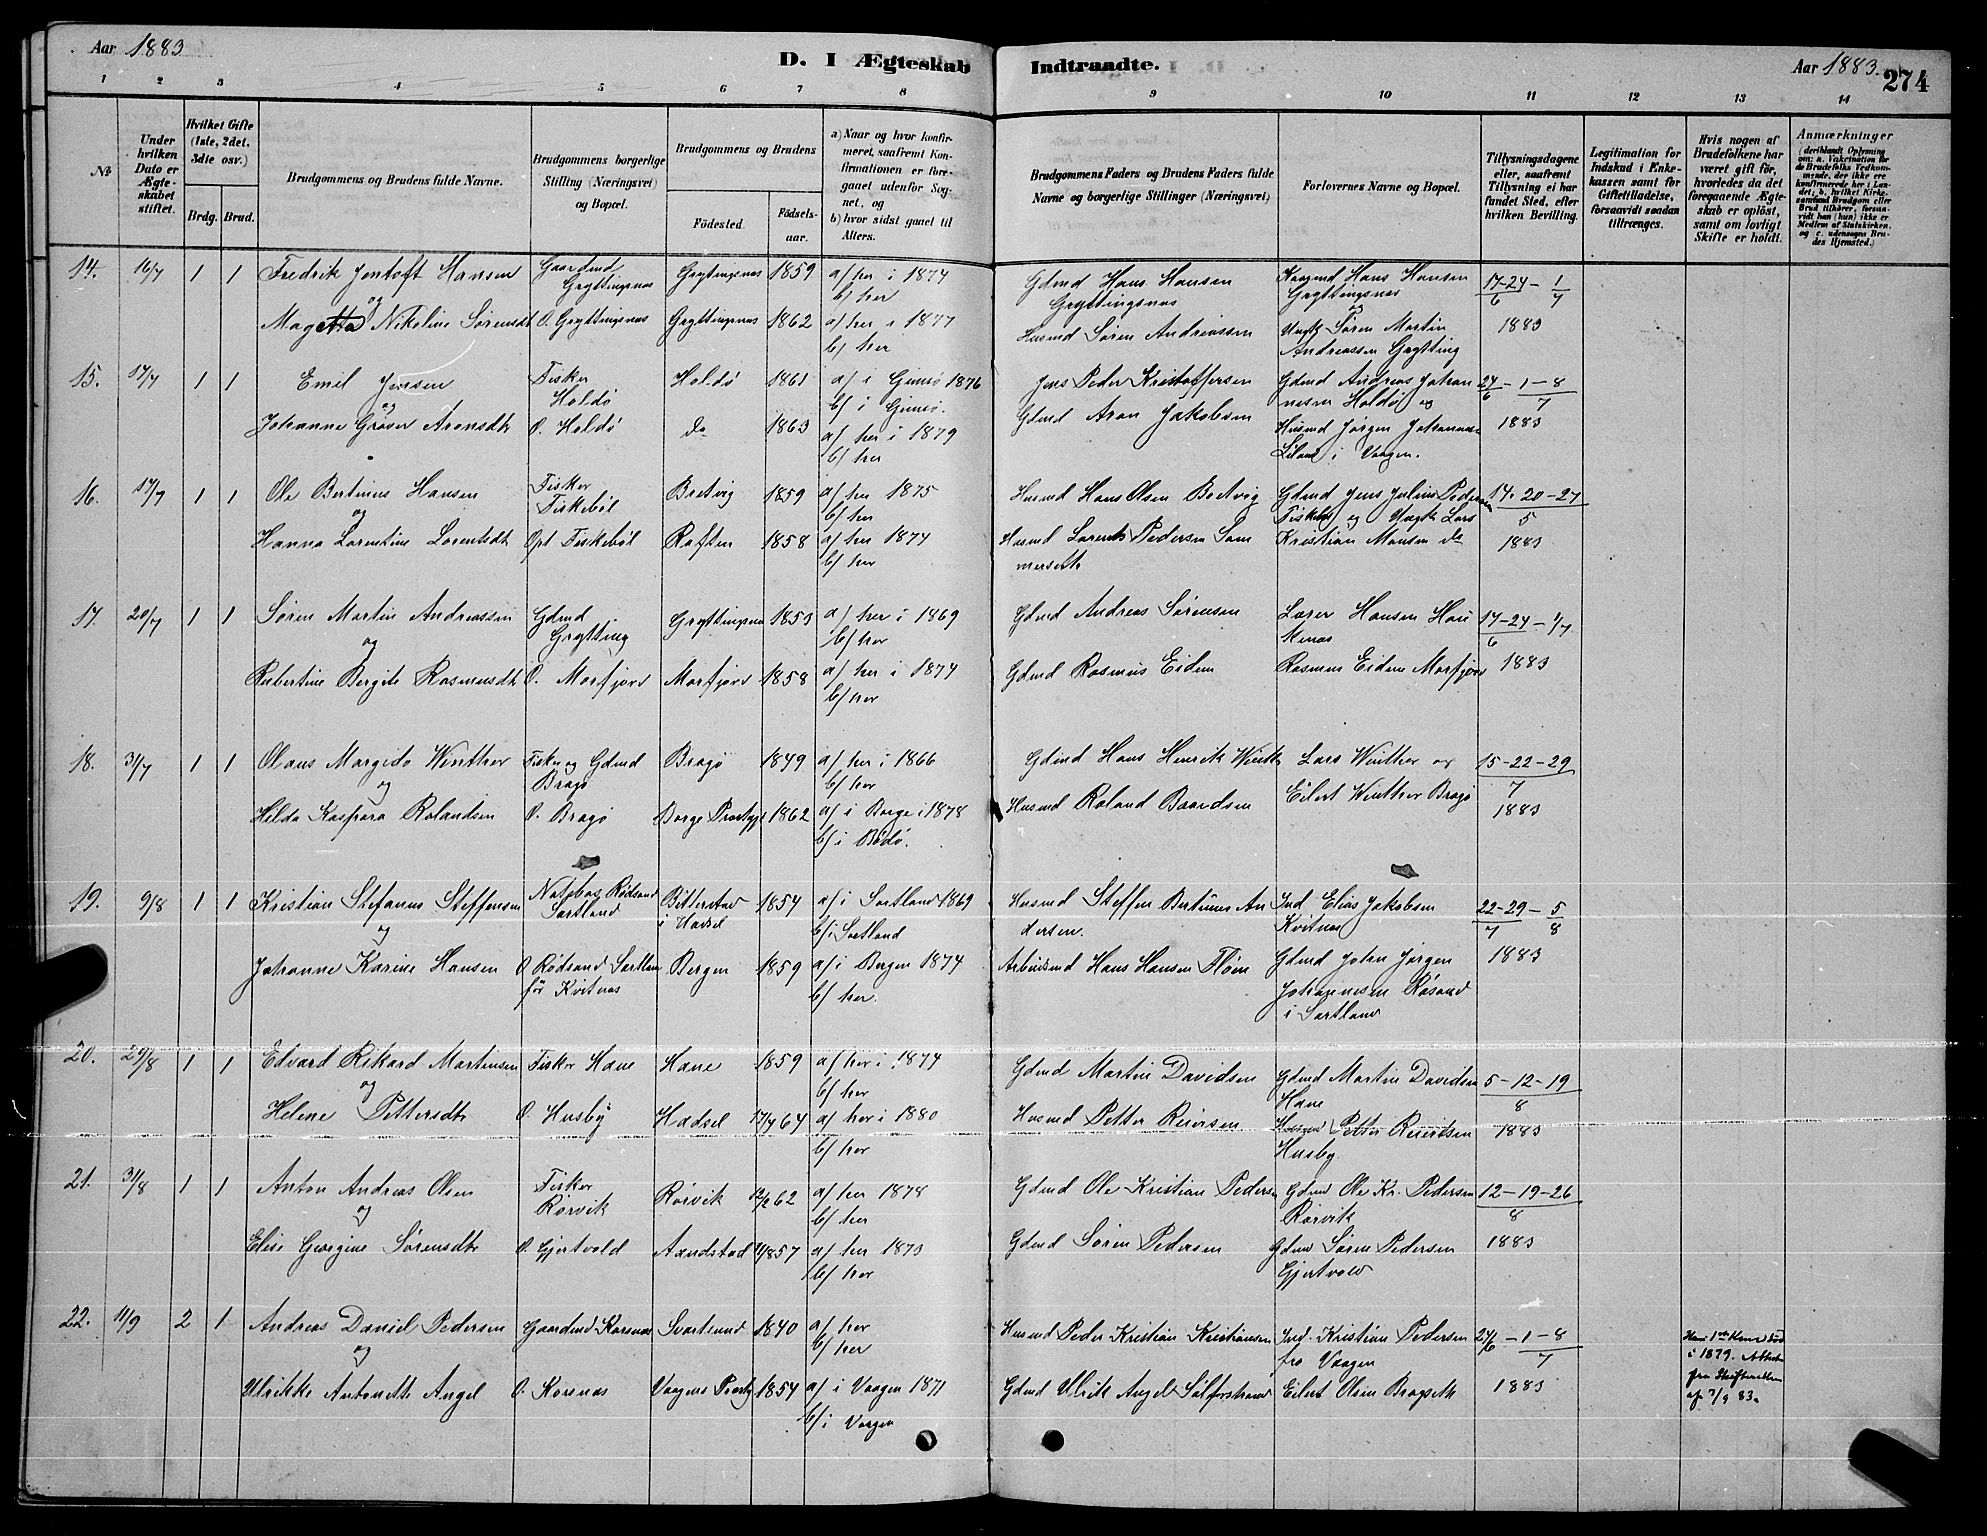 Aar 1883
D. I Ægteskab Indtraadte.
Aar 1883.
274
1 2 3 4 5 6 7 8 9 10 11 12 13 14
№
Under hvilken Dato er Ægteskabet stiftet.
Hvilket Gifte (1ste, 2det, 3die osv.)
Brdg. Brud.
Brudgommens og Brudens fulde Navne.
Brudgommens borgerlige Stilling (Næringsvei) og Bopæl.
Brudgommens og Brudens
Fødested. Fødselsaar.
a) Naar og hvor konfirmeret, saafremt Konfirmationen er foregaaet udenfor Sognet, og
b) hvor sidst gaaet til Alters.
Brudgommens Faders og Brudens Faders fulde Navne og borgerlige Stillinger (Næringsvei)
Forlovernes Navne og Bopæl.
Tillysningsdagene eller, saafremt Tillysning ei har fundet Sted, efter hvilken Bevilling.
Legitimation for Indskud i Enkekassen samt for Giftetilladelse, forsaavidt saadan tiltrænges.
Hvis nogen af Brudefolkene har været gift før, hvorledes da det foregaaende Ægteskab er opløst, samt om lovligt Skifte er holdt.
Anmærkninger (deriblandt Oplysning om: a. Vakcination for de Brudefolks Vedkommende, der ikke ere konfirmerede her i Landet; b. hvilket Kirkesamfund Brudgom eller Brud tilhører, forsaavidt han (hun) ikke er Medlem af Statskirken, og c. udensogns Brudes Hjemsted.)
14. 16/7 1 1 Fredrik Jentoft Hansen Gaardmd Gryttingsnes Gryttingsnes 1859 a/ her i 1874 b/ her Gdmd Hans Hansen Gryttingsnes Kaagmd Hans Hansen Gryttingsnes 17-24/6 - 1/7
og
Magetta Nikoline Sørensdt D. Gryttingsnes Gryttingsnes 1862 a/ her i 1877 b/ her Husmd Søren Andreassen Ungk Søren Martin Andreassen Grytting 1883
15. 17/7 1 1 Emil Jensen Fisker Holdø Holdø 1861 a/ i Gimsø 1876 b/ i Gimsø. Jens Peder Kristoffersen Gdmd Andreas Johannesen Holdø og 24/6 - 1 - 8/7
og
Johanne Gröver Aronsdt D. Holdø do 1863 a/ her i 1879 b/ her Gdmd Aron Jakobsen Husmd Jørgen Johannes Liland i Vaagen. 1883
16. 17/7 1 1 Ole Bertinus Hansen Fisker Fiskebøl Bretvig 1859 a/ her 1875 b/ her Husmd Hans Olsen Bretvig Gdmd Jens Julius Pedersen Fiskebøl og Ungk Lars 14. 20-27/5
og
Hanna Lorentine Lorentsdt Opt Fiskebøl Raften 1858 a/ her 1874 b/ her Husmd Lorents Pedersen Sommerseth Kristian Hansen do 1883
17. 20/7 1 1 Søren Martin Andreassen Gdmd Grytting Gryttingsnes 1853 a/ her i 1869 b/ her Gdmd Andreas Sørensen Lærer Hansen Haukenes 17-24/6 - 1/7
og
Rubertine Bergite Rasmusdt D. Morfjord Morfjord 1858 a/ her i 1874 b/ her Gdmd Rasmus Eidem Rasmus Eidem Morfjord 1883
18. 31/7 1 1 Olaus Margido Winther Fisker og Gdmd Bragø Bragø 1849 a/ her i 1866 b/ her Gdmd Hans Henrik Winth Lars Winther og 15-22-29/7
og
Hilda Kaspara Rolandsen D. Bragø Borge Prestgj 1862 a/ i Borge i 1878 b/ i Bodø. Husmd Roland Baardsen Eilert Winther Bragø 1883
19. 9/8 1 1 Kristian Stefanus Steffensen Rødsand Sortland Bitterstad i Hadsel 1854 a/ i Sortland 1869 b/ i Sortland Husmd Steffen Bertinus Andersen. Ind. Elias Jakobsen Kvitnes 22-29/7 - 5/8
og
Johanne Karine Hansen D Rødsand Sortlan før Kvitnes Bergen 1859 a/ i Bergen 1874 b/ her. Arbeidsmd Hans Hansen Fløien Gdmd Johan Jørgen Johannesen Røsand i Sortland 1883
20. 29/8 1 1 Edvard Rikard Martinsen Fisker Hane Hane 1859 a/ her i 1874 b/ her Gdmd Martin Davidsen Gdmd Martin Davidsen Hane 5-12-19/8
og
Helene Pettersdtr D. Husby Hadsel 17/4 64 a/ her i 1880 b/ her Husmd Petter Reiersen. Husmd Petter Reiertsen Husby 1883
21. 31/8 1 1 Anton Andreas Olsen Fisker Rörvik Rörvik 12/2 62 a/ her 1878 b/ her Gdmd Ole Kristian Pedersen Gdmd Ole Kr. Pedersen Rörvik 12-19-26/8
og
Elise Georgine Sørensdtr D. Gjertvold Aandstad 1857 a/ her 1873 b/ her Gdmd Søren Pedersen Gdmd Søren Pedersen Gjertvold 1883
22. 11/9 2 1 Andreas Daniel Pedersen Gaardmd Korsnes Svartsund 1840 a/ her b/ her Husmd Peder Kristian Kristiansen Ind. Kristian Pedersen fra Vaagen 24/6 - 1 - 8/7
og
Ulrikke Antonette Angel D. Korsnes Vaagens Prestg 1854 a/ i Vaagen 1871 b/ i Vaagen Gdmd Ulrik Angel Sølferstrand Eilert Olsen Bragseth 1883
Hans 1ste Kone død i 1879. Attest fra Skifteretten af 7/9 83.